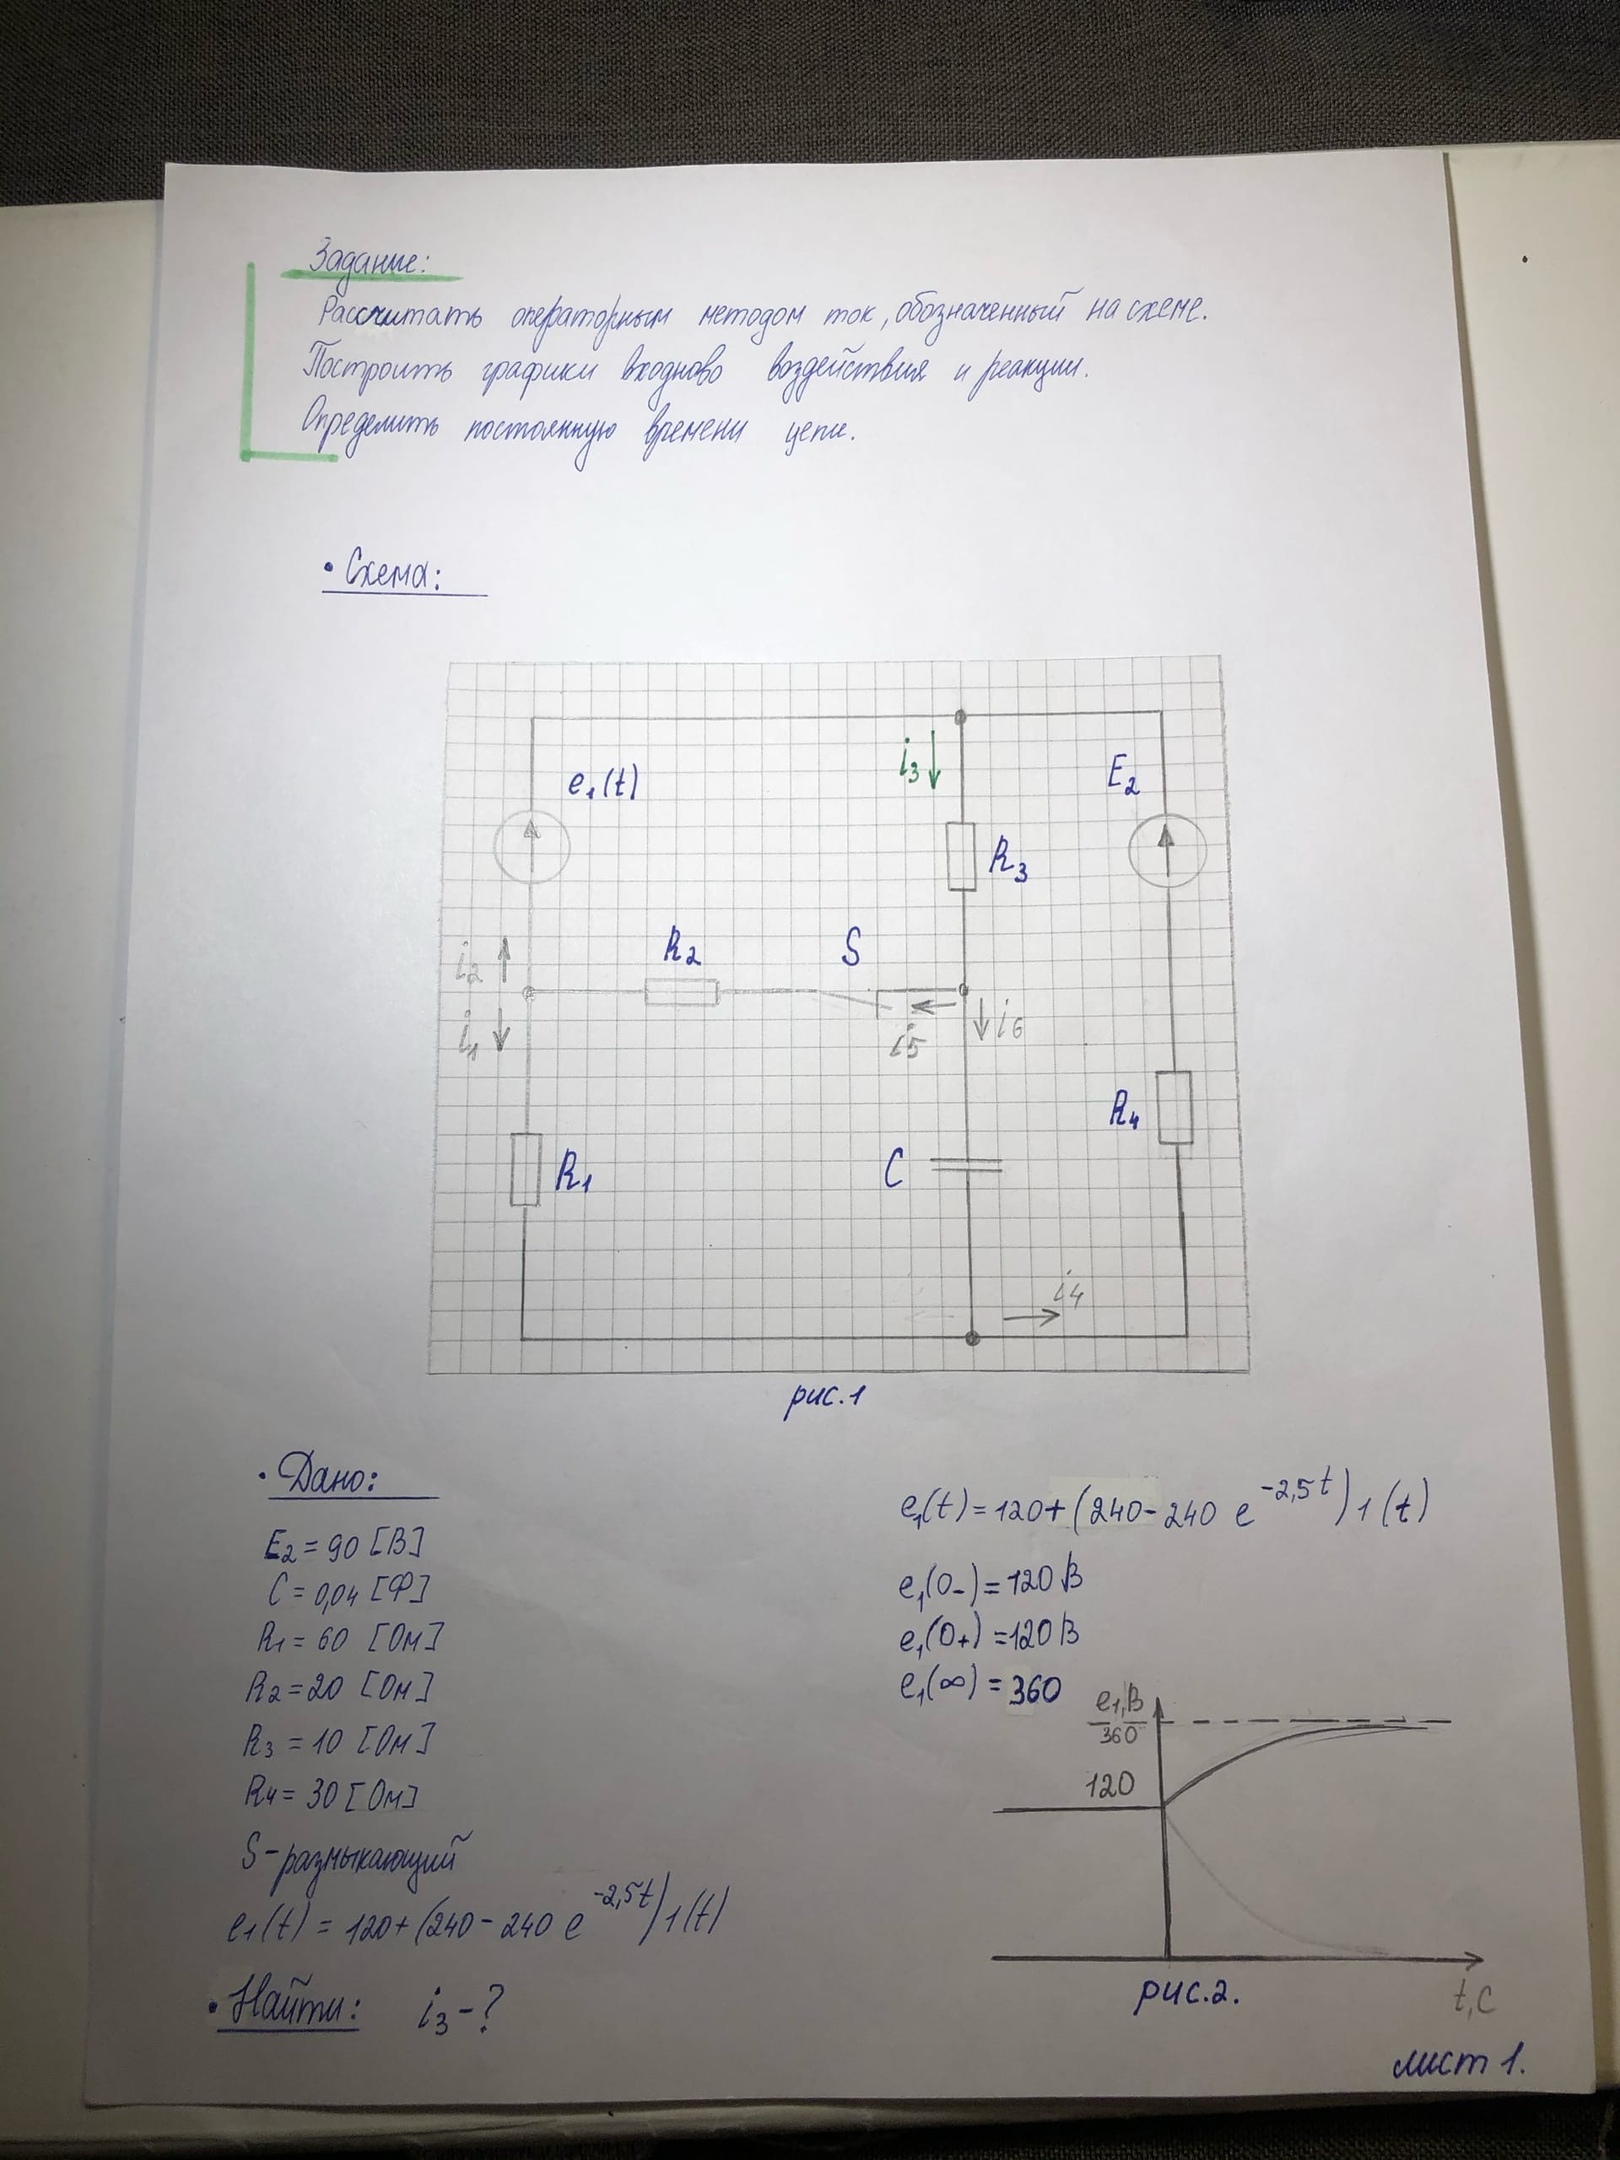 Задание:
Рассчитать операторным методом ток, обозначенный на схеме.
Построить графики входново воздействия и реакции.
Определить постоянную времени цепи.
• Схема:
e₁(t)
i₃
E₂
R₃
i₂
R₂
S
i₁
i₅
i₆
R₁
C
R₄
i₄
рис.1
• Дано:
E₂ = 90 [В]
C = 0,04 [Ф]
R₁ = 60 [Ом]
R₂ = 20 [Ом]
R₃ = 10 [Ом]
R₄ = 30 [Ом]
S - размыкающий
e₁(t) = 120 + (240 - 240 e^-2,5t) 1(t)
• Найти: i₃ - ?
e₁(t) = 120 + (240 - 240 e^-2,5t) 1(t)
e₁(0₋) = 120 В
e₁(0₊) = 120 В
e₁(∞) = 360
e₁,В
360
120
t,с
рис.2.
лист 1.